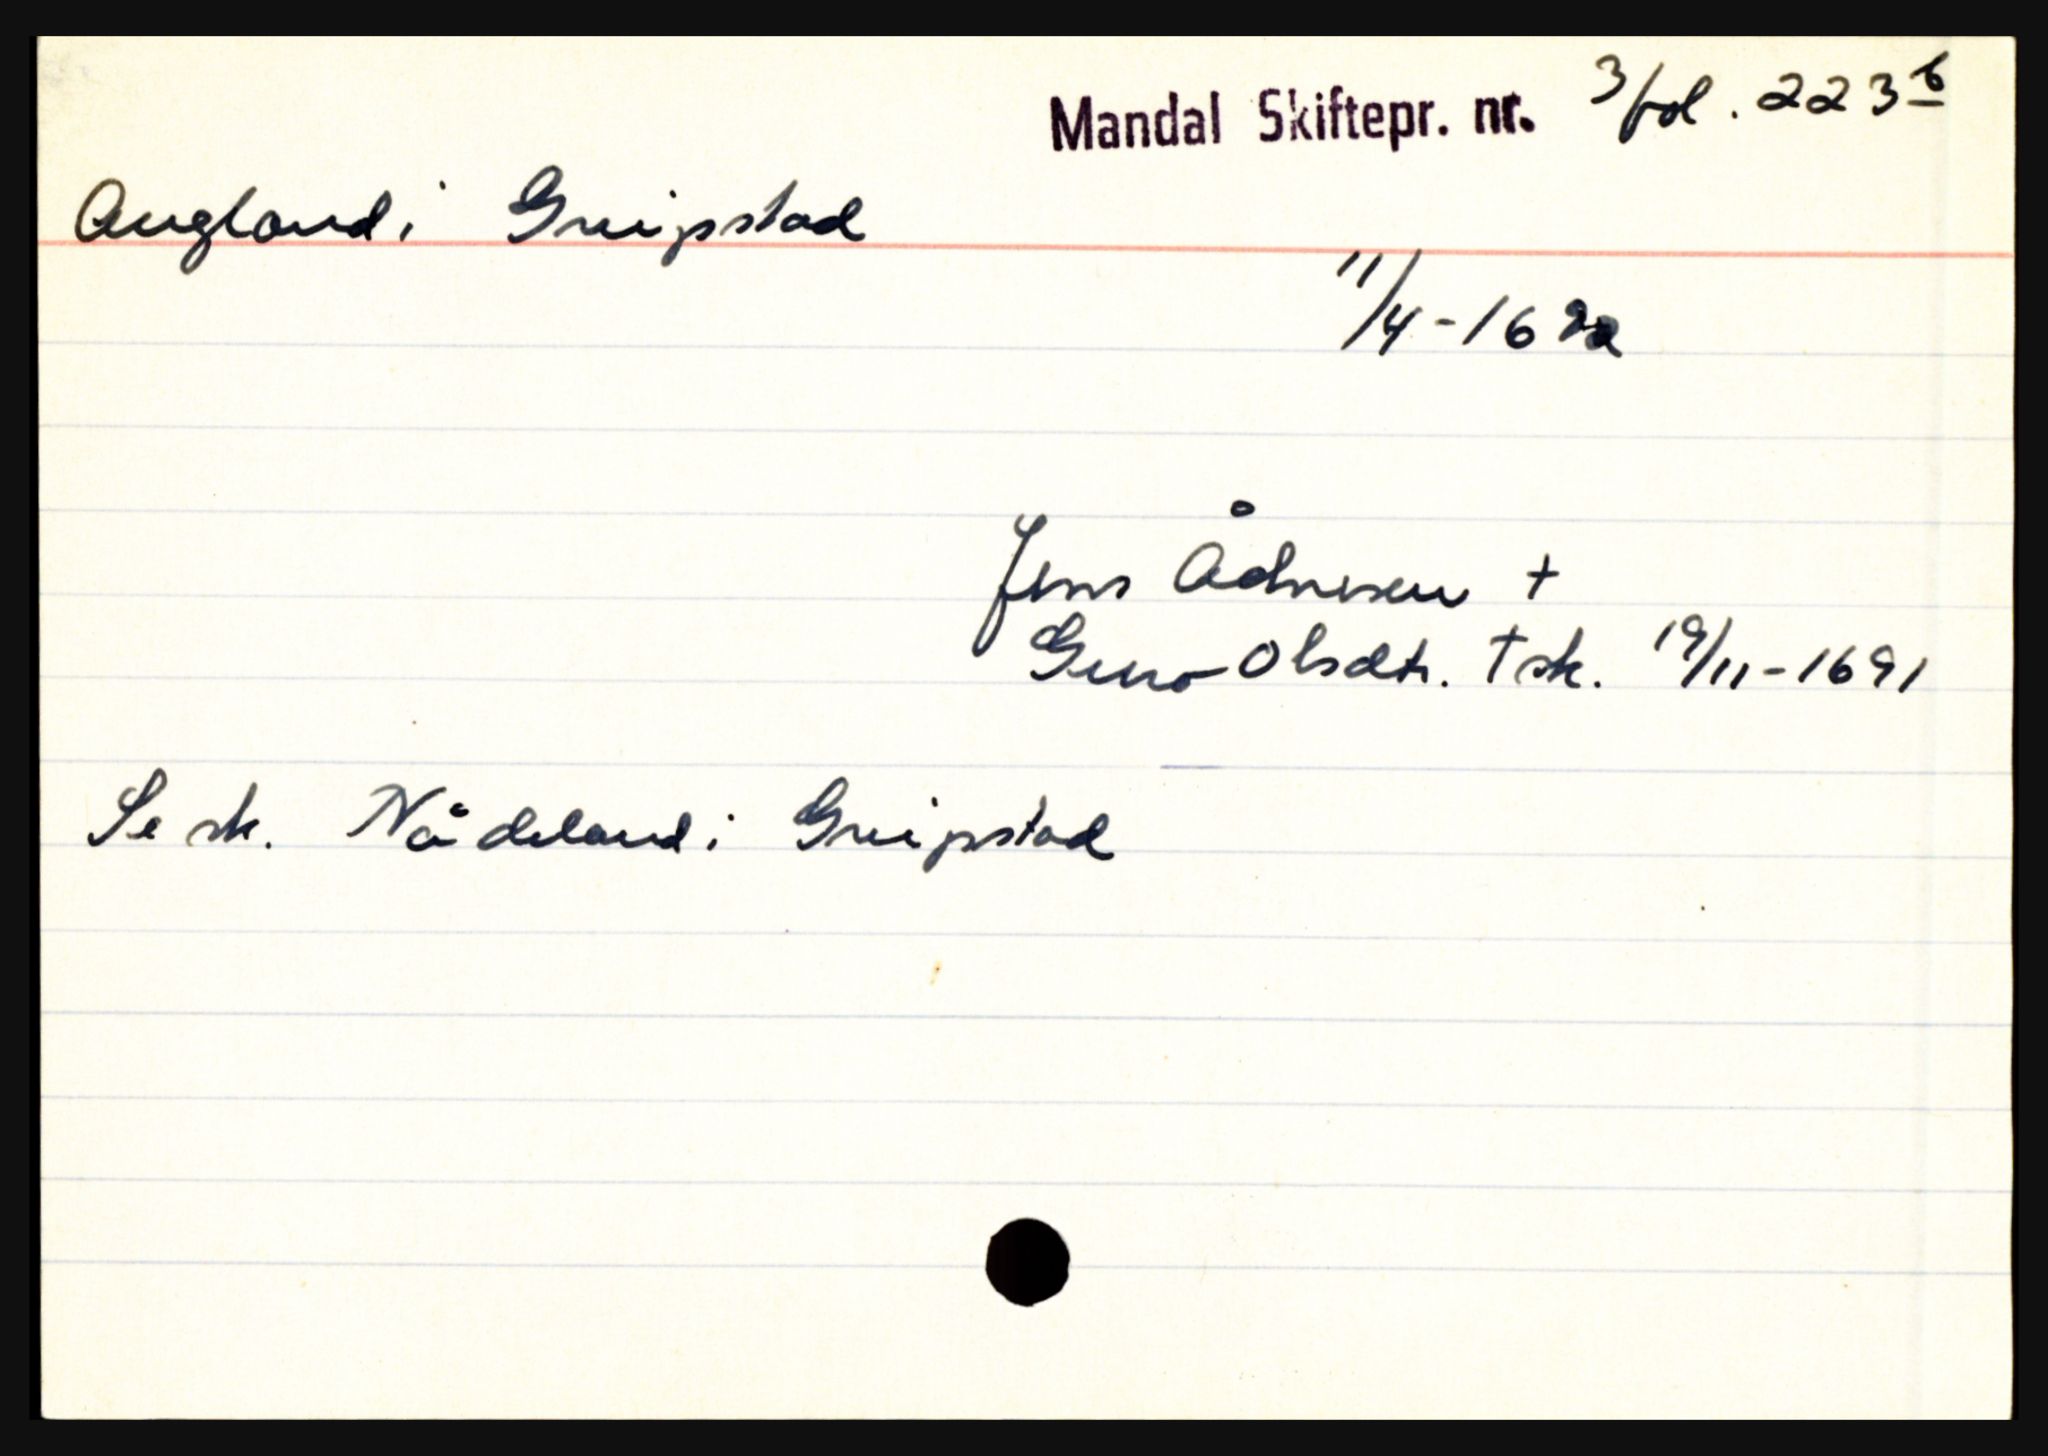 Mandal Skiftepr. nr. 3/fol. 223 b
Augland i Greipstad
11/4-1692
Jens Ådnesen +
Guro Olsdtr. † sk. 19/11-1691
Se sk. Nådeland i Greipstad